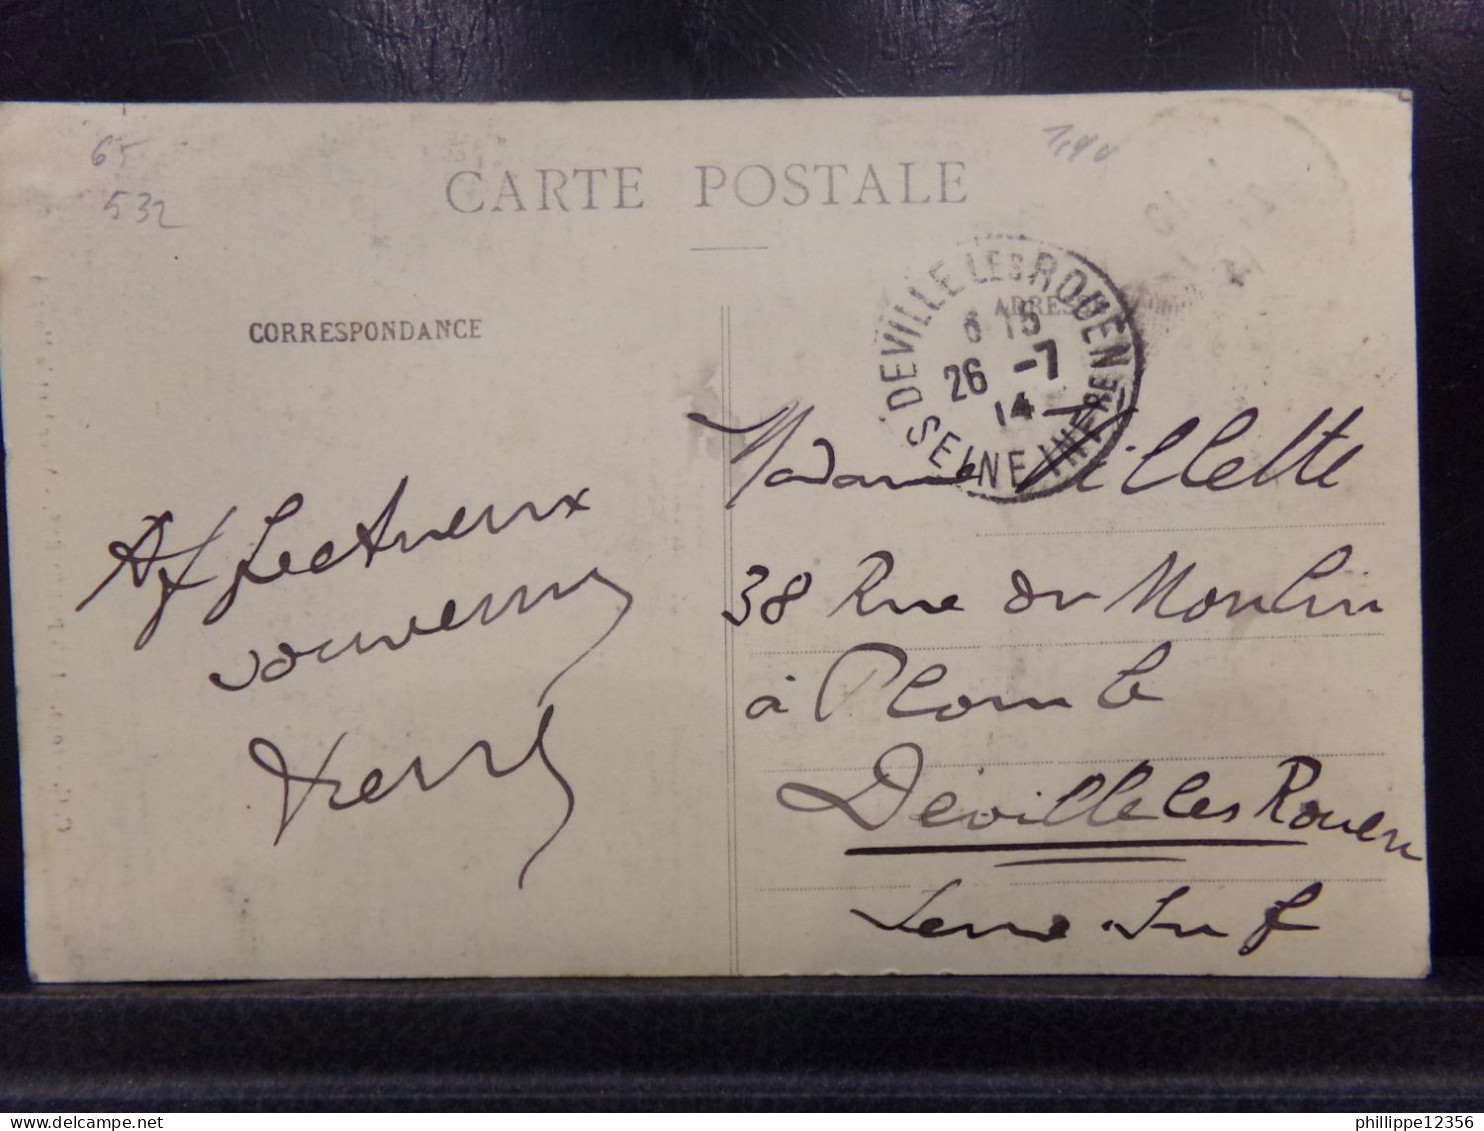 65
532
CARTE POSTALE
CORRESPONDANCE
DEVILLE LES ROUEN
6 15
26 -7
14
SEINE INFRE
Affectueux
souvenir
Madame Villette
38 Rue du Moulin
à Plomb
Déville les Rouen
Seine Inf
delcampe.net
phillippe12356